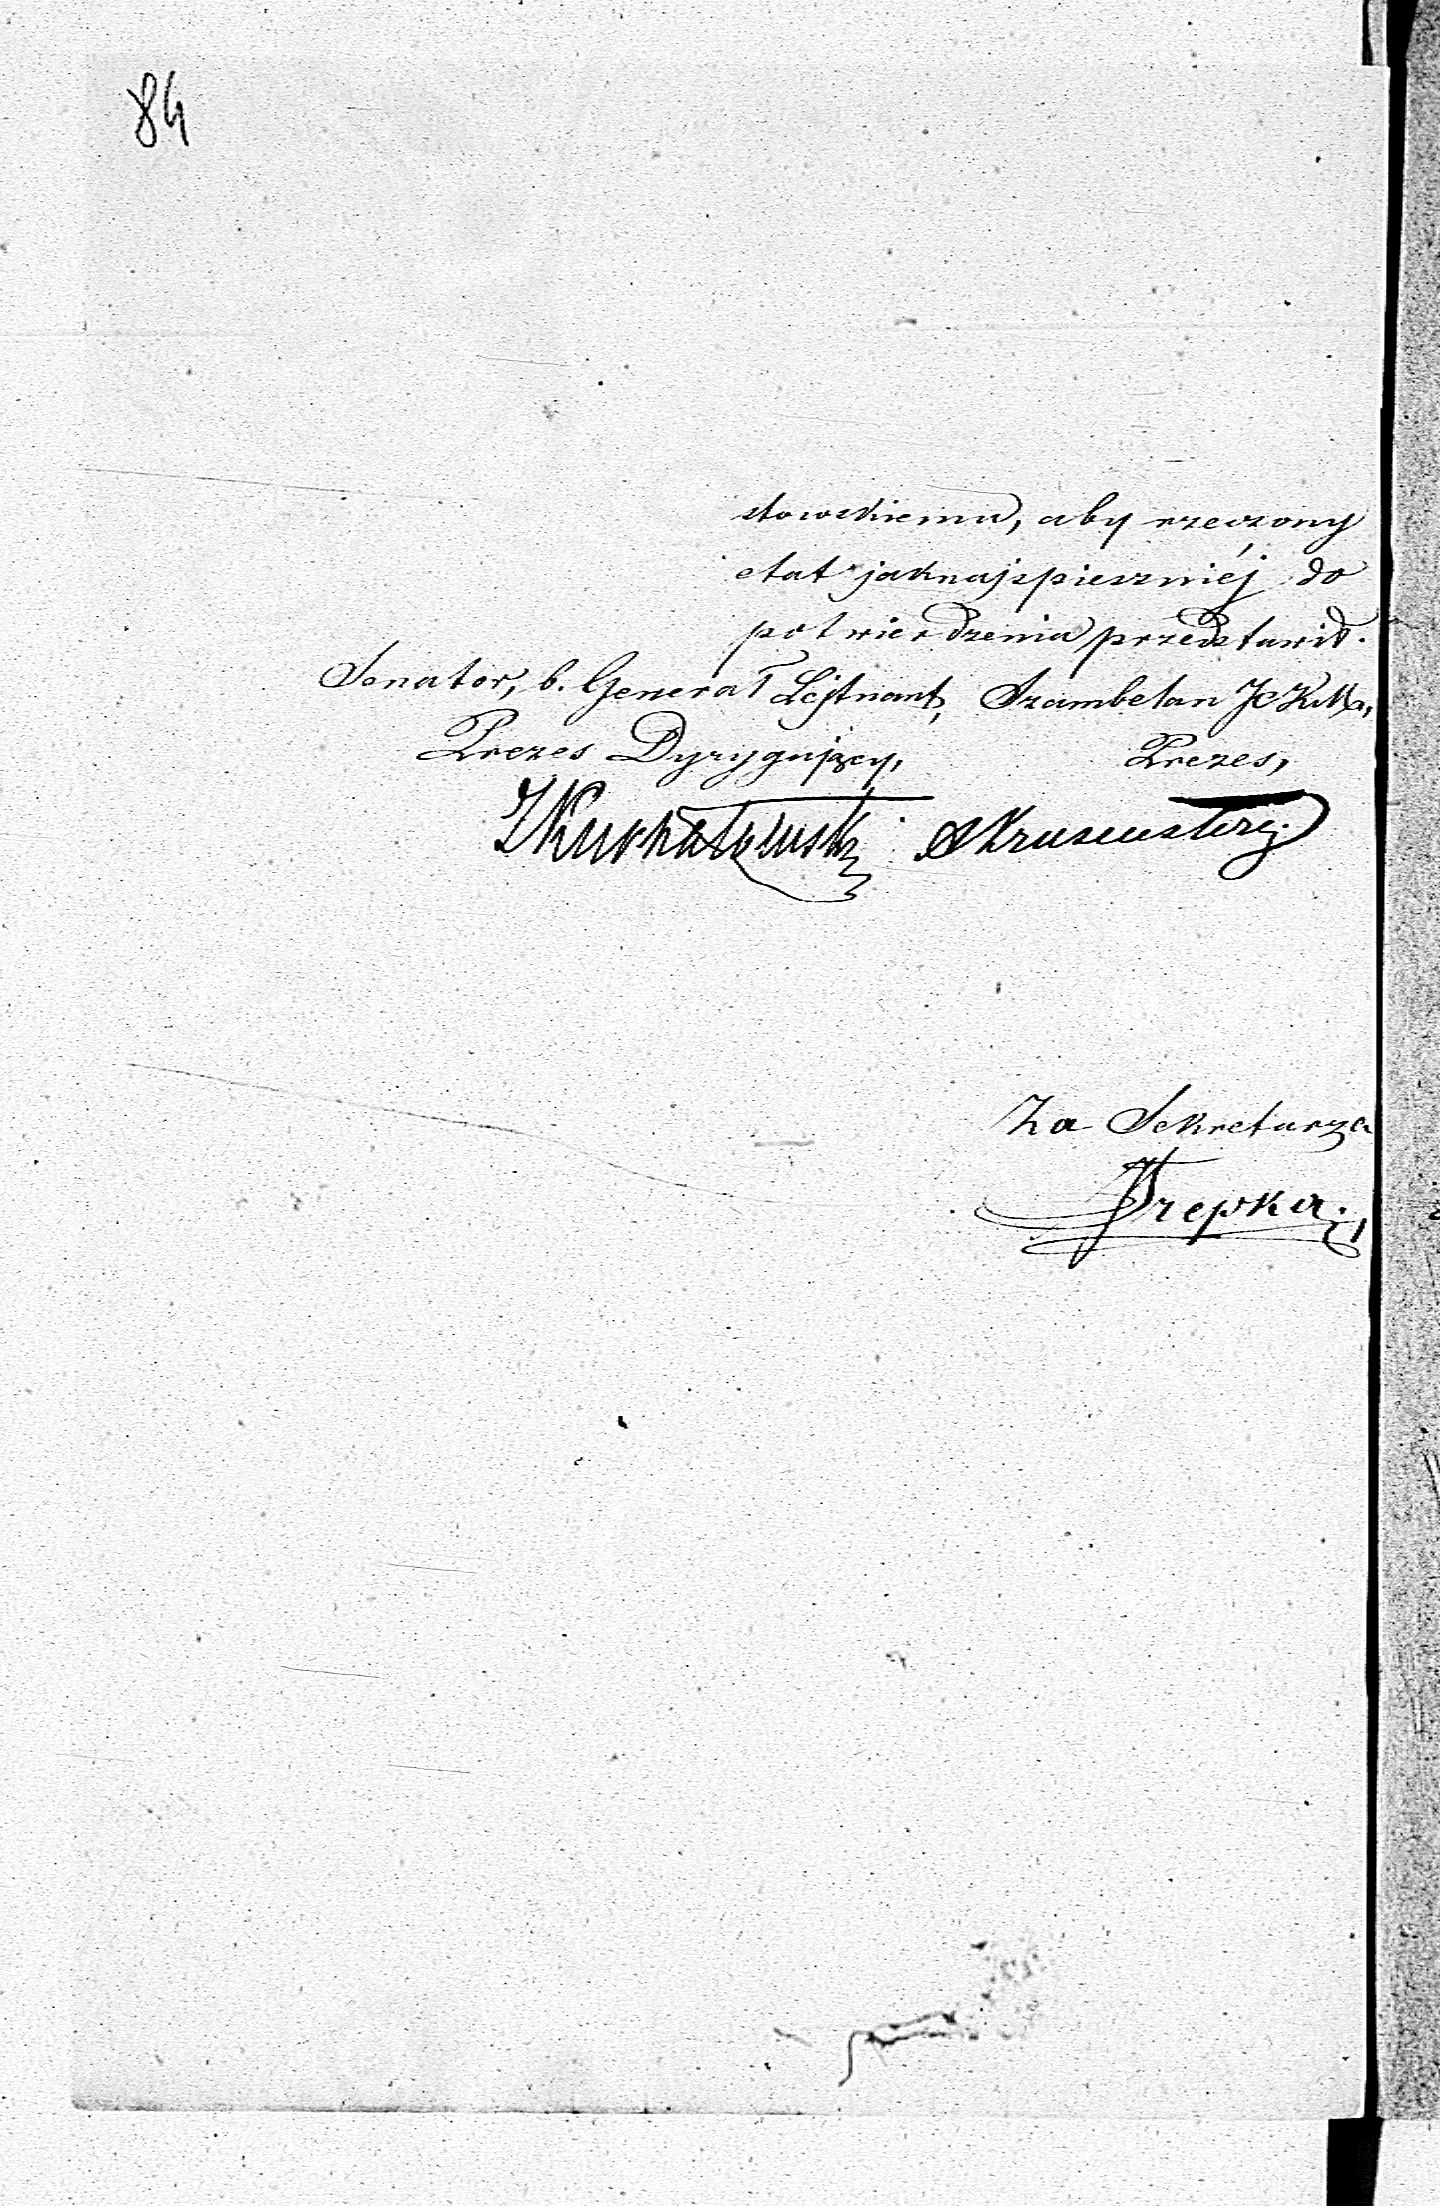 84
stowskiemu, aby rzeczony
etat jaknajspieszniéj do
potwierdzenia przedstawił.
Senator, b. Generał Lejtnant, Szambelan
Prezes Dyrygujący, Prezes,
Za Sekretarza
Trepka.